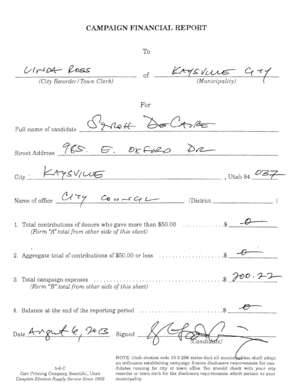 CAMPAIGN FINANCIAL REPORT
To
LINDA ROSS of KAYSVILLE CITY
(City Recorder/Town Clerk) (Municipality)
For
Full name of candidate
Street Address 985 E. OXFORD DR
City: KAYSVILLE, Utah 84 037
Name of office CITY COUNCIL (District )
1. Total contributions of donors who gave more than $50.00 $ 0
(Form "A" total from other side of this sheet)
2. Aggregate total of contributions of $50.00 or less $ 0
3. Total campaign expenses $ 200.22
(Form "B" total from other side of this sheet)
4. Balance at the end of the reporting period $ 0
Date August 6, 2013 Signed
(Candidate)
5-6-C
Carr Printing Company Bountiful, Utah
Complete Election Supply Service Since 1902
NOTE: Utah election code 10-3-208 states that all municipalities shall adopt
an ordinance establishing campaign finance disclosure requirements for can-
didates running for city or town office. You should check with your city
recorder or town clerk for the disclosure requirements which pertain to your
municipality.